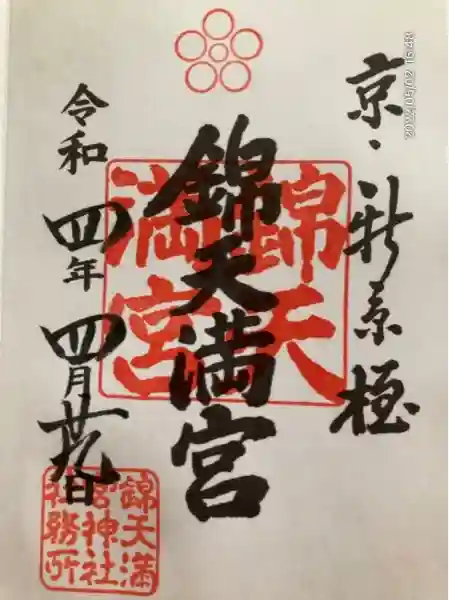 京・新京極
錦天満宮
錦天
満宮
令和四年四月廿九日
錦天満
宮神社
社務所
2022/05/02 15:48